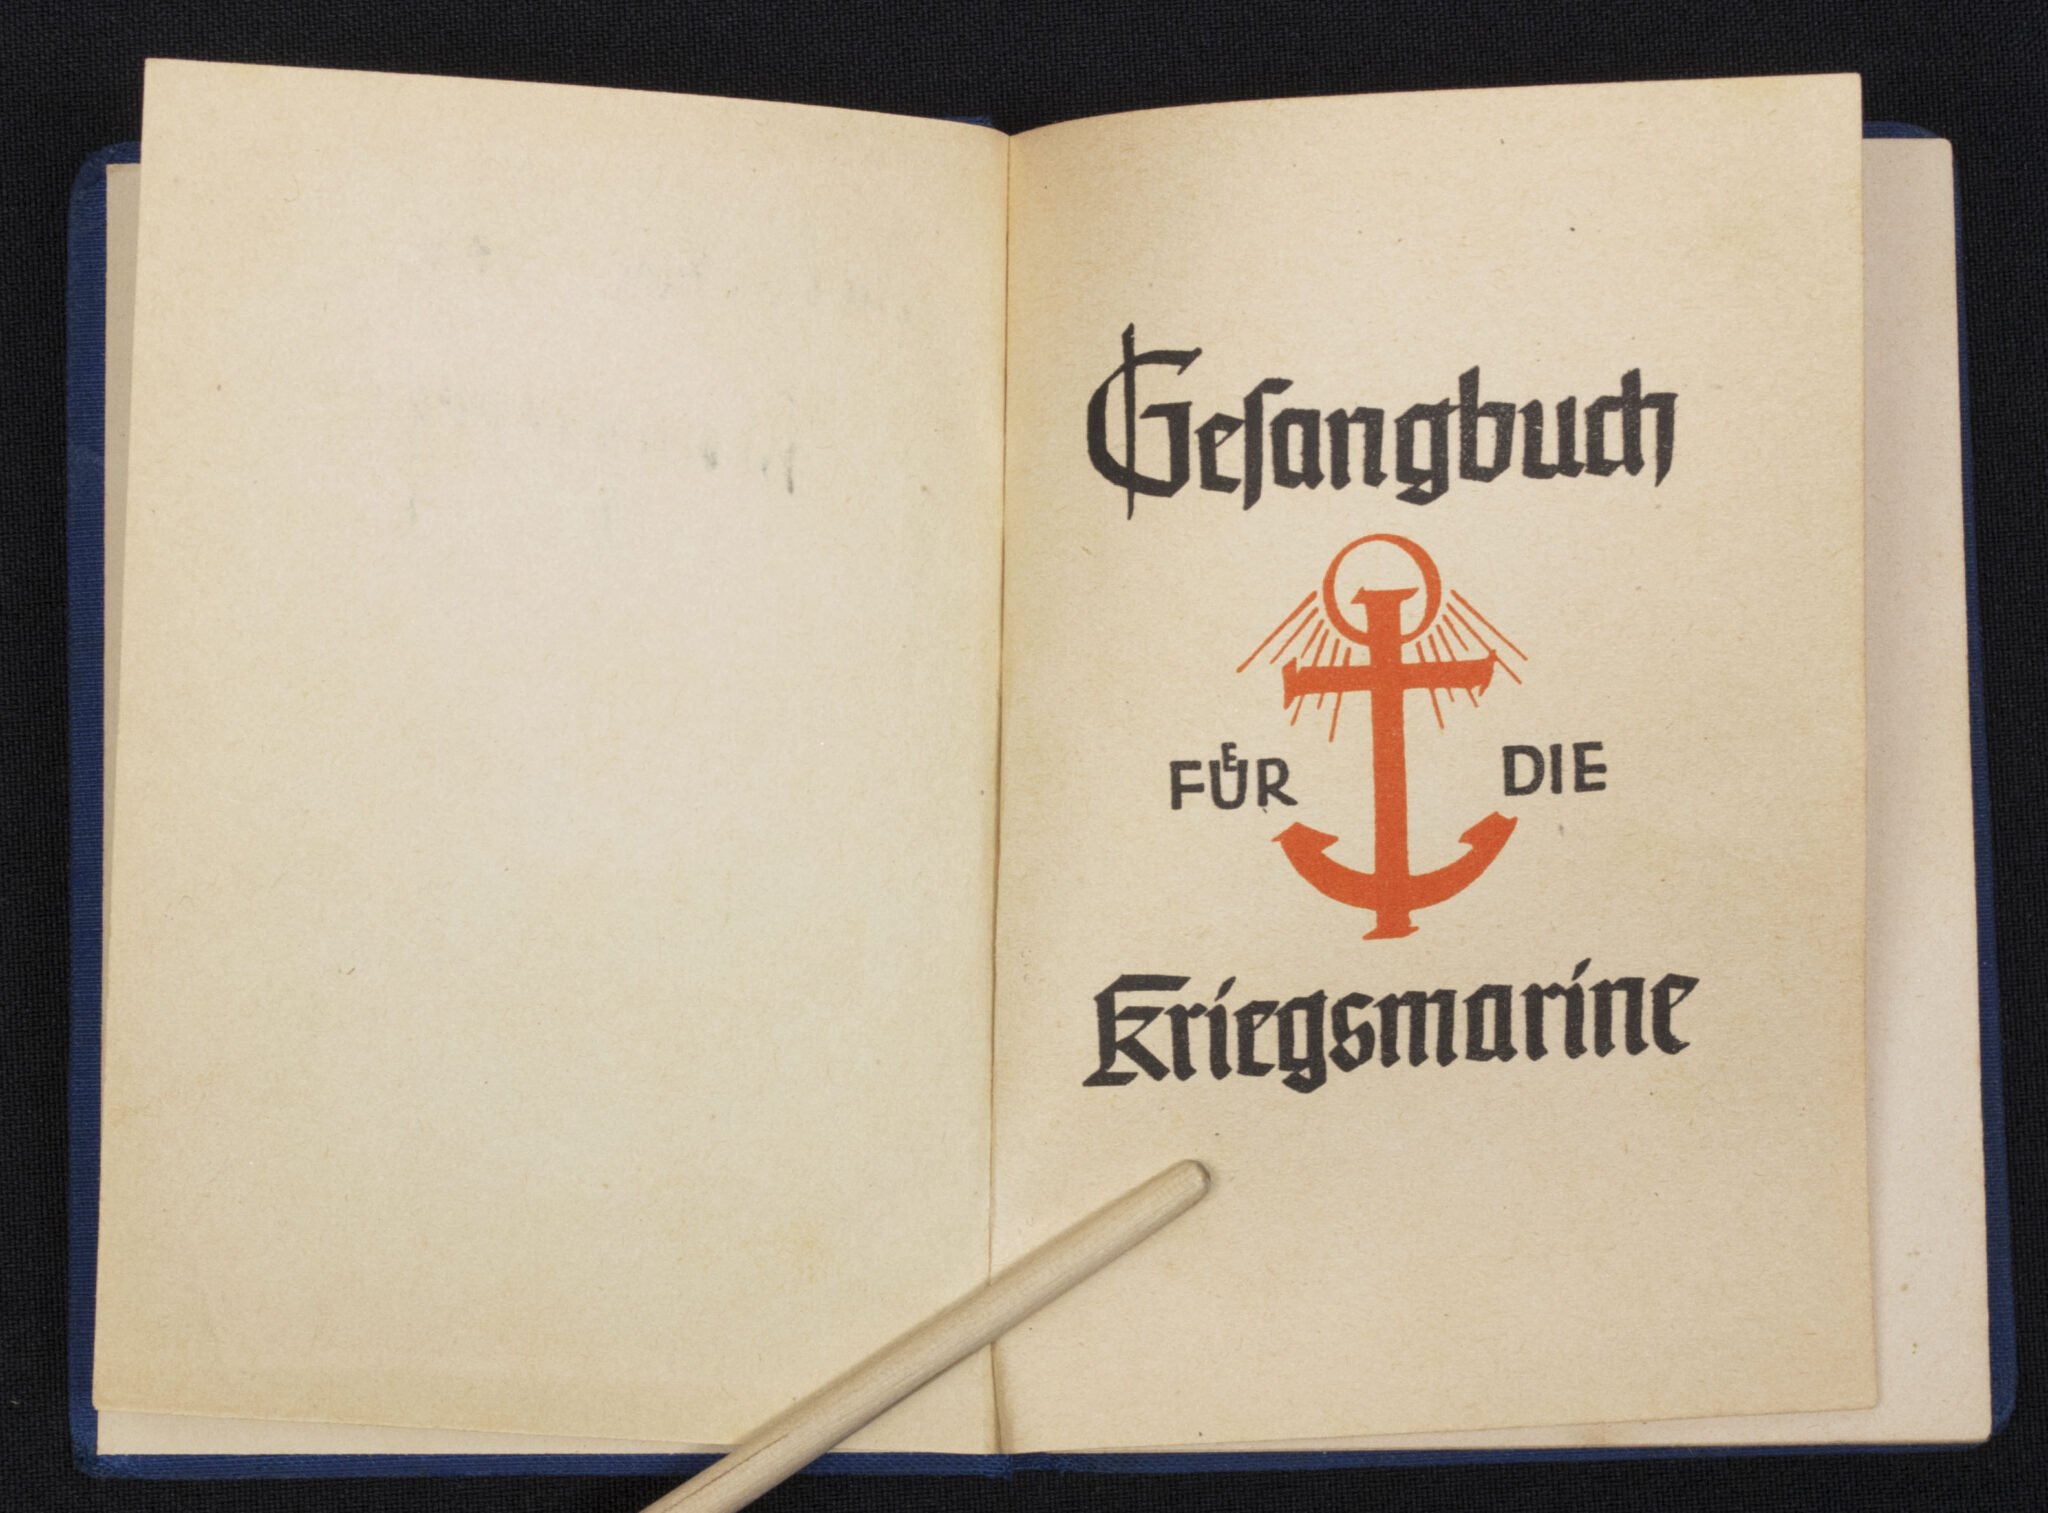 Geſangbuch
FUͤR DIE
Kriegsmarine